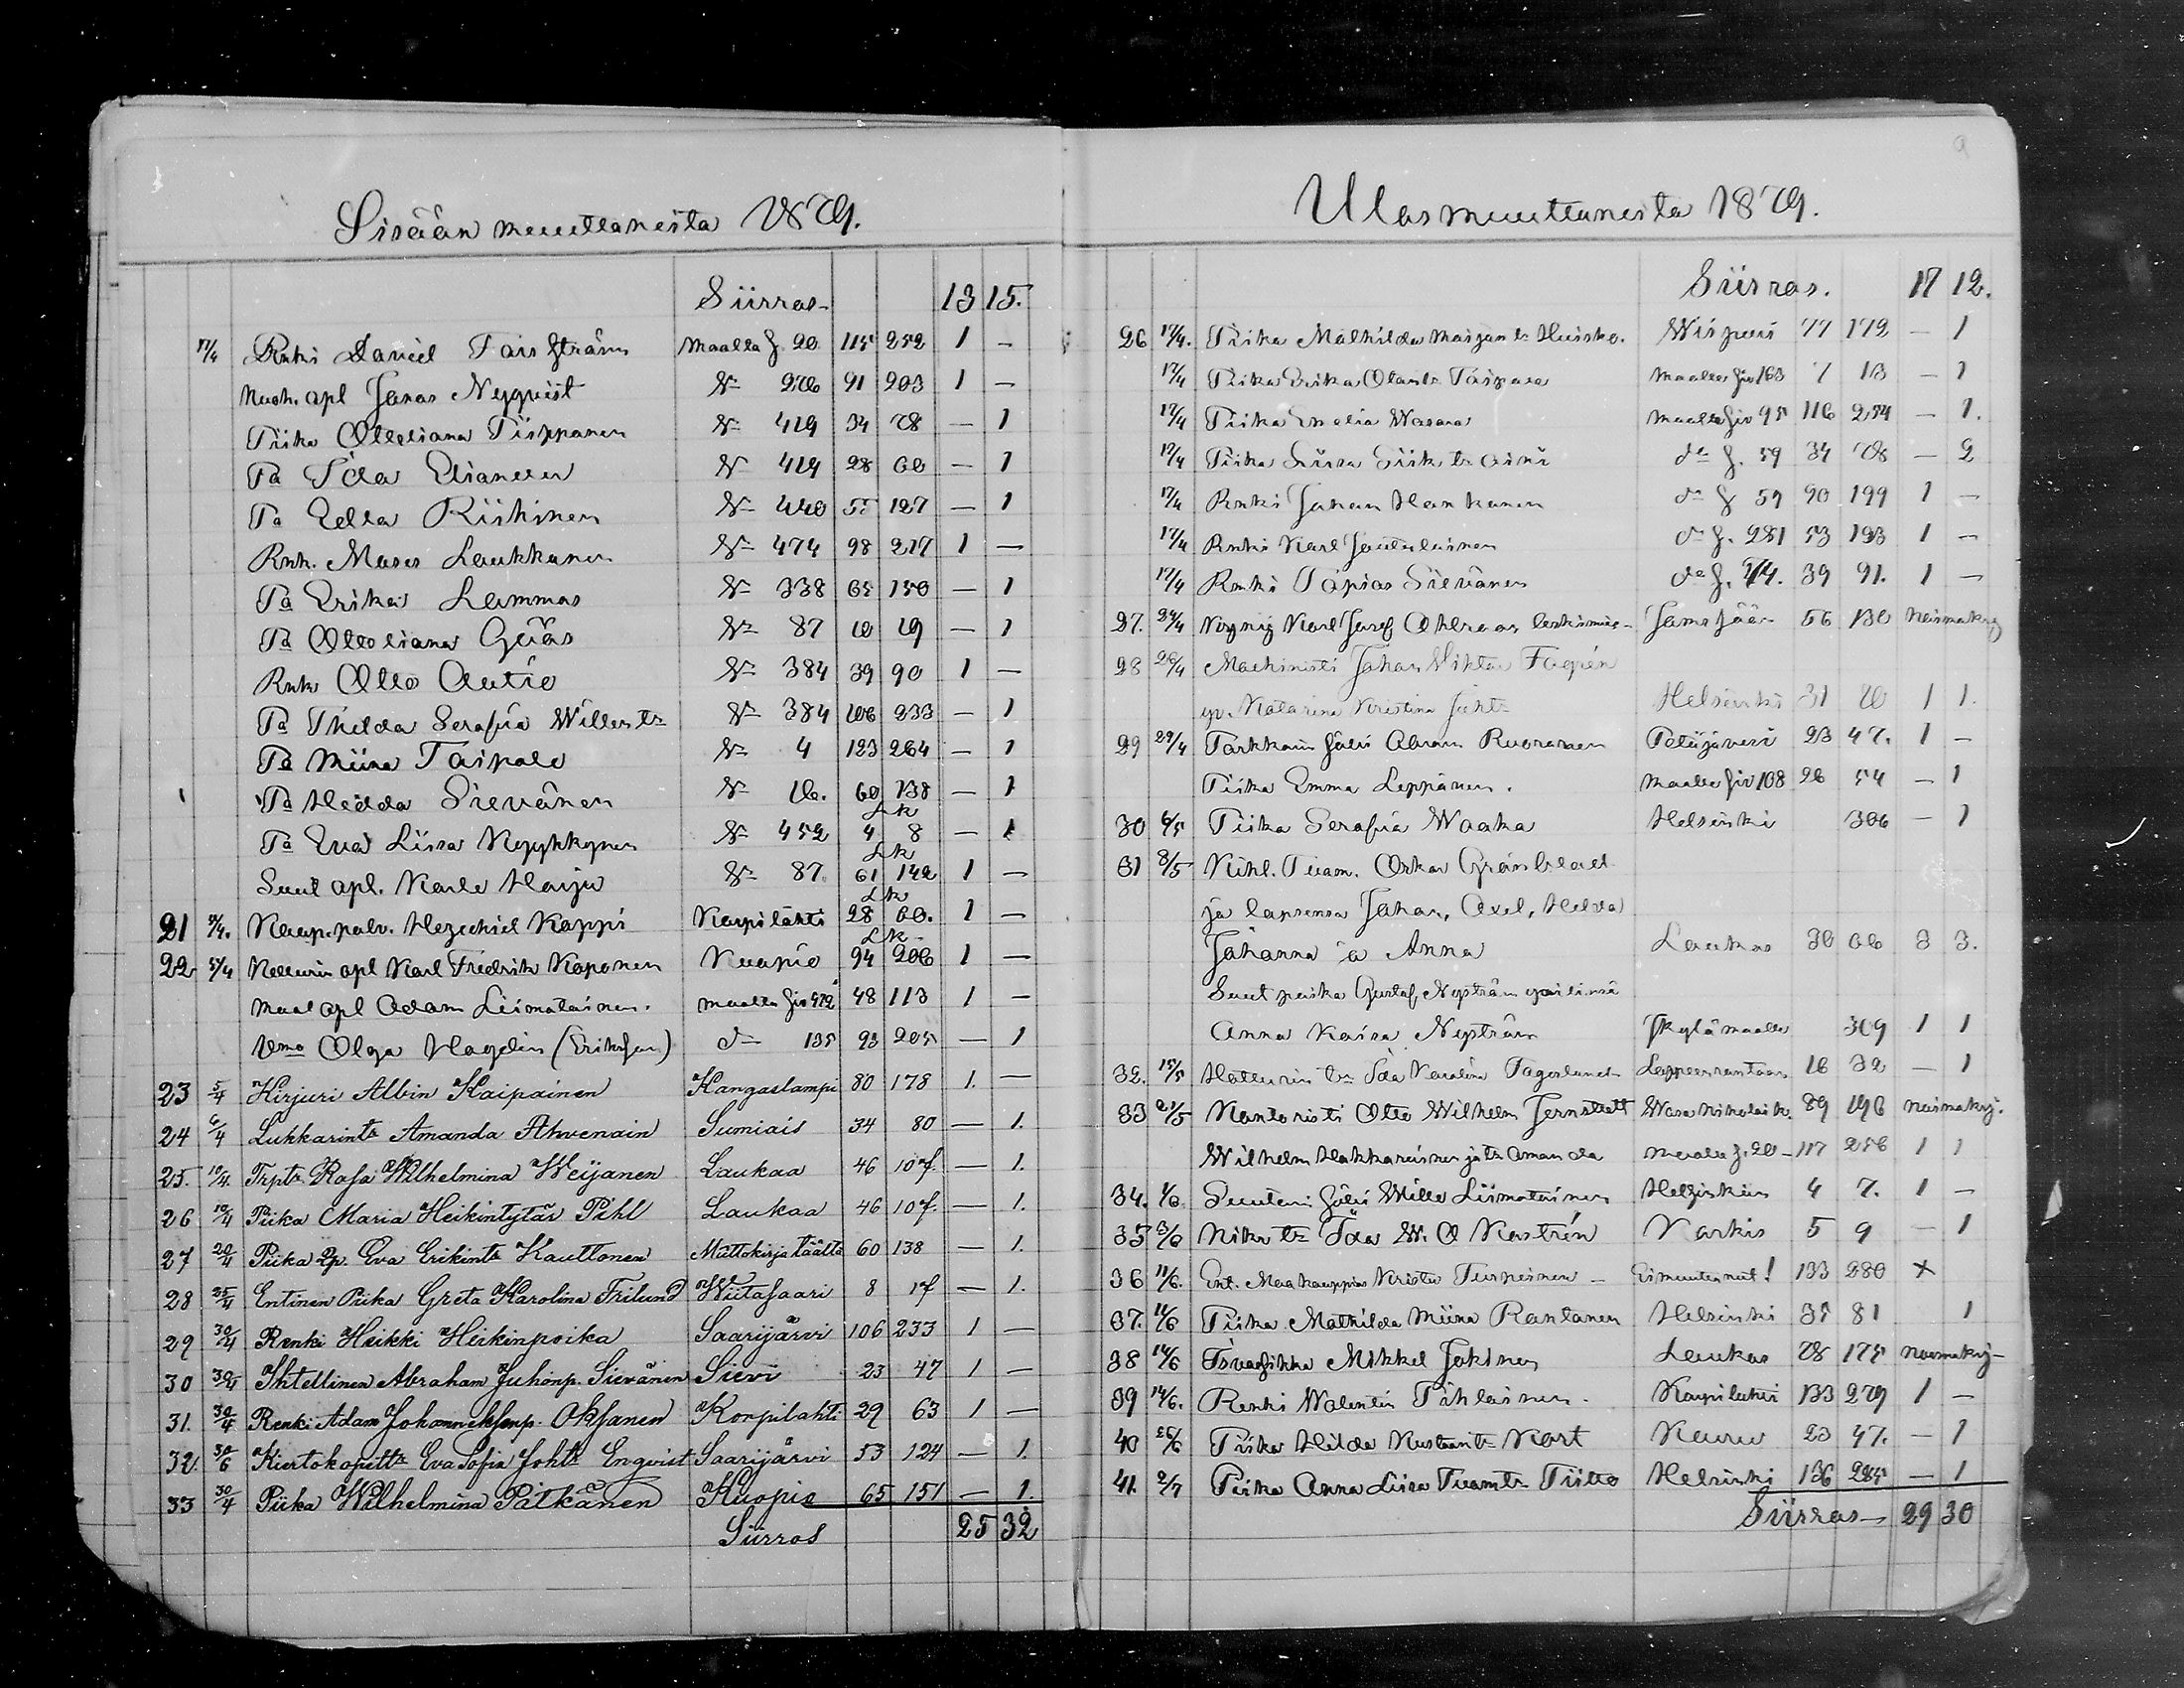 Sisään muuttaneita 1879.
Siirros 13 15.
17/4 Renki Daniel Forsström maalta f. 20 115 252 1 —
apl Jonas Nyqvist 91 203 1 —
Piika Ottiliana Piipponen 419 34 78 — 1
Pa Ida 419 28 60 — 1
Pa Edla Riikinen 440 55 127 — 1
Rnk. Moses Laukkanen 474 98 217 1 —
Pa Erika Lammas 338 65 150 — 1
Pa Ottoliana 87 10 19 — 1
Rnk Otto Autio 384 39 90 1 —
Pa Thilda Serafia Willentr 384 106 233 — 1
Pa Miina Taipale 4 123 264 — 1
Pa Hedda Sievänen 16. 60 138 — 1
Lk
Pa Eva Liisa Nyykkynen 452 4 8 — 1
Lk
Suut apl. Kalle Harju 87. 61 142 1 —
Lk
21 Kaup. palv. Hezechiel Koppi Korpilahti 28 60. 1 —
Lk
22 5/4 apl Karl Fredrik Koponen Kuopio 94 206 1 —
Maal apl Adam Liimatainen. maalta siv 472 48 113 1 —
Olga Hagelin (Erikssen) do 135 93 205 — 1
23 5/4 Kirjuri Albin Kaipainen Kangaslampi 80 178 1. —
24 6/4 Lukkarintr Amanda Ahvenain Sumiais 34 80 — 1.
25. 10/4. Trptr Rosa Wilhelmina Weijanen Laukaa 46 107. — 1.
26 10/4 Piika Maria Heikintytär Pihl Laukaa 46 107. — 1.
27 20/4 Piika 2p. Eva Erikintr Kauttonen Muttokirja täältä 60 138 — 1.
28 25/4 Entinen Piika Greta Karolina Frilund Wiitasaari 8 17 — 1.
29 30/4 Renki Heikki Heikinpoika Saarijärvi 106 233 1 —
30 30/4 Ihtellinen Abraham Juhonp. Sievänen Sievi 23 47 1 —
31. 30/4 Renki Adam Johanneksenp. Oksanen Korpilahti 29 63 1 —
32. 30/6 Kiertokoulttr Eva Sofia Johtr Enqvist Saarijärvi 53 124 — 1.
33 30/4 Piika Wilhelmina Pätkänen Kuopio 65 151 — 1.
Siirros 25 32
9
Ulosmuuttaneita 1879.
Siirros. 17 12.
26 17/4. Piika Mathilda Huisko. Wiipuri 77 172 — 1
17/4 Piika Erika Olantr Taipale Maalle siv 163 7 13 — 1
17/4 Piika Emelia Wasara maalle siv 95 116 254 — 1.
17/4 Piika Liisa do f. 59 34 78 — 2
17/4 Renki Johan Hankanen do f 59 90 199 1 —
17/4 Renki Karl Jautulainen do f. 281 53 123 1 —
17/4 Renki Tapias Sievänen do f. 74. 39 91. 1 —
27. 24/4 Karl Josef Ahlroos leskimies Jämsään 56 130
28 26/4 Machinisti Johan Wiktor Fagrén
Katarina Kristina Juhtr Helsinki 31 70 1 1.
29 29/4 Abram Ruoranen Petäjävesi 23 47. 1 —
Piika Emma Leppänen. maalle siv 108 26 54 — 1
30 6/5 Piika Serafia Waaka Helsinki 306 — 1
31 8/5 Kihl. Tuom. Oskar Grönblad
ja lapsensa Johan, Axel, Hilda
Johanna ja Anna Laukas 30 66 3 3.
Gustaf Nyström
Anna Kaisa Nyström Jkylä maalle 309 1 1
32. 15/5 Ida Karolina Fagerlund Lappeenrantaan 16 32 — 1
33 21/5 Kantoristi Otto Wilhelm Jernstedt Wasa Nikolaik. 89 196
Wilhelm Hakkarainen ja tr Amanda maalle f. 20 117 256 1 1
34. 1/6 Wille Liimatainen Helsinkiin 4 7. 1 —
35 3/6 Ida W. O Kastrén Karkis 5 9 — 1
36 11/6. Ent. Maakauppias Krister Turneinen Ei muuttanut! 133 280 x
37. 11/6 Piika Mathilda Miina Rantanen Helsinki 35 81 1
38 14/6 Mikkel Jokinen Laukas 78 175
39 14/6. Renki Walentin Pihlainen. Korpilahti 133 279 1 —
40 26/6 Piika Hilda Kustaantr Kort Keuru 23 47. — 1
41. 2/7 Piika Anna Liisa Tuomtr Tiitto Helsinki 136 285 — 1
Siirros 29 30